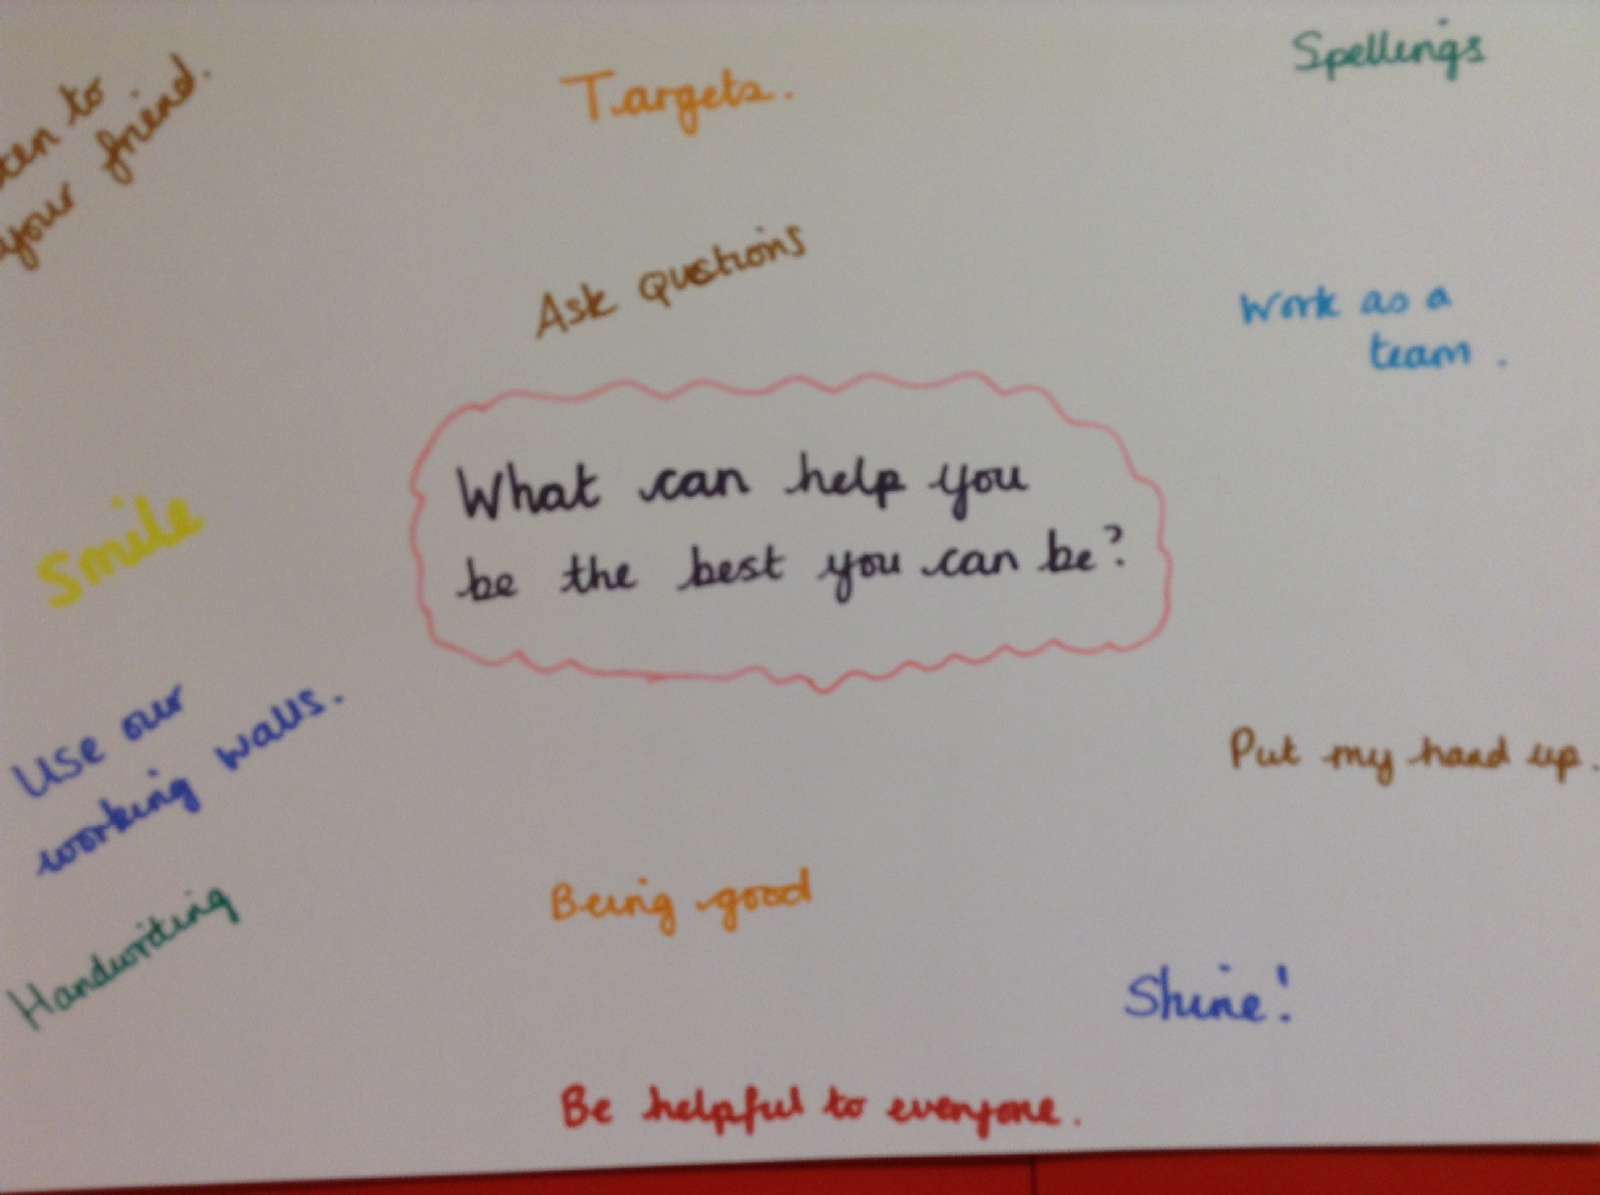 ten to
your friend.
Targets.
Spellings
Ask questions
Work as a
team.
What can help you
be the best you can be?
Smile
Use our
working walls.
Put my hand up.
Handwriting
Being good
Shine!
Be helpful to everyone.